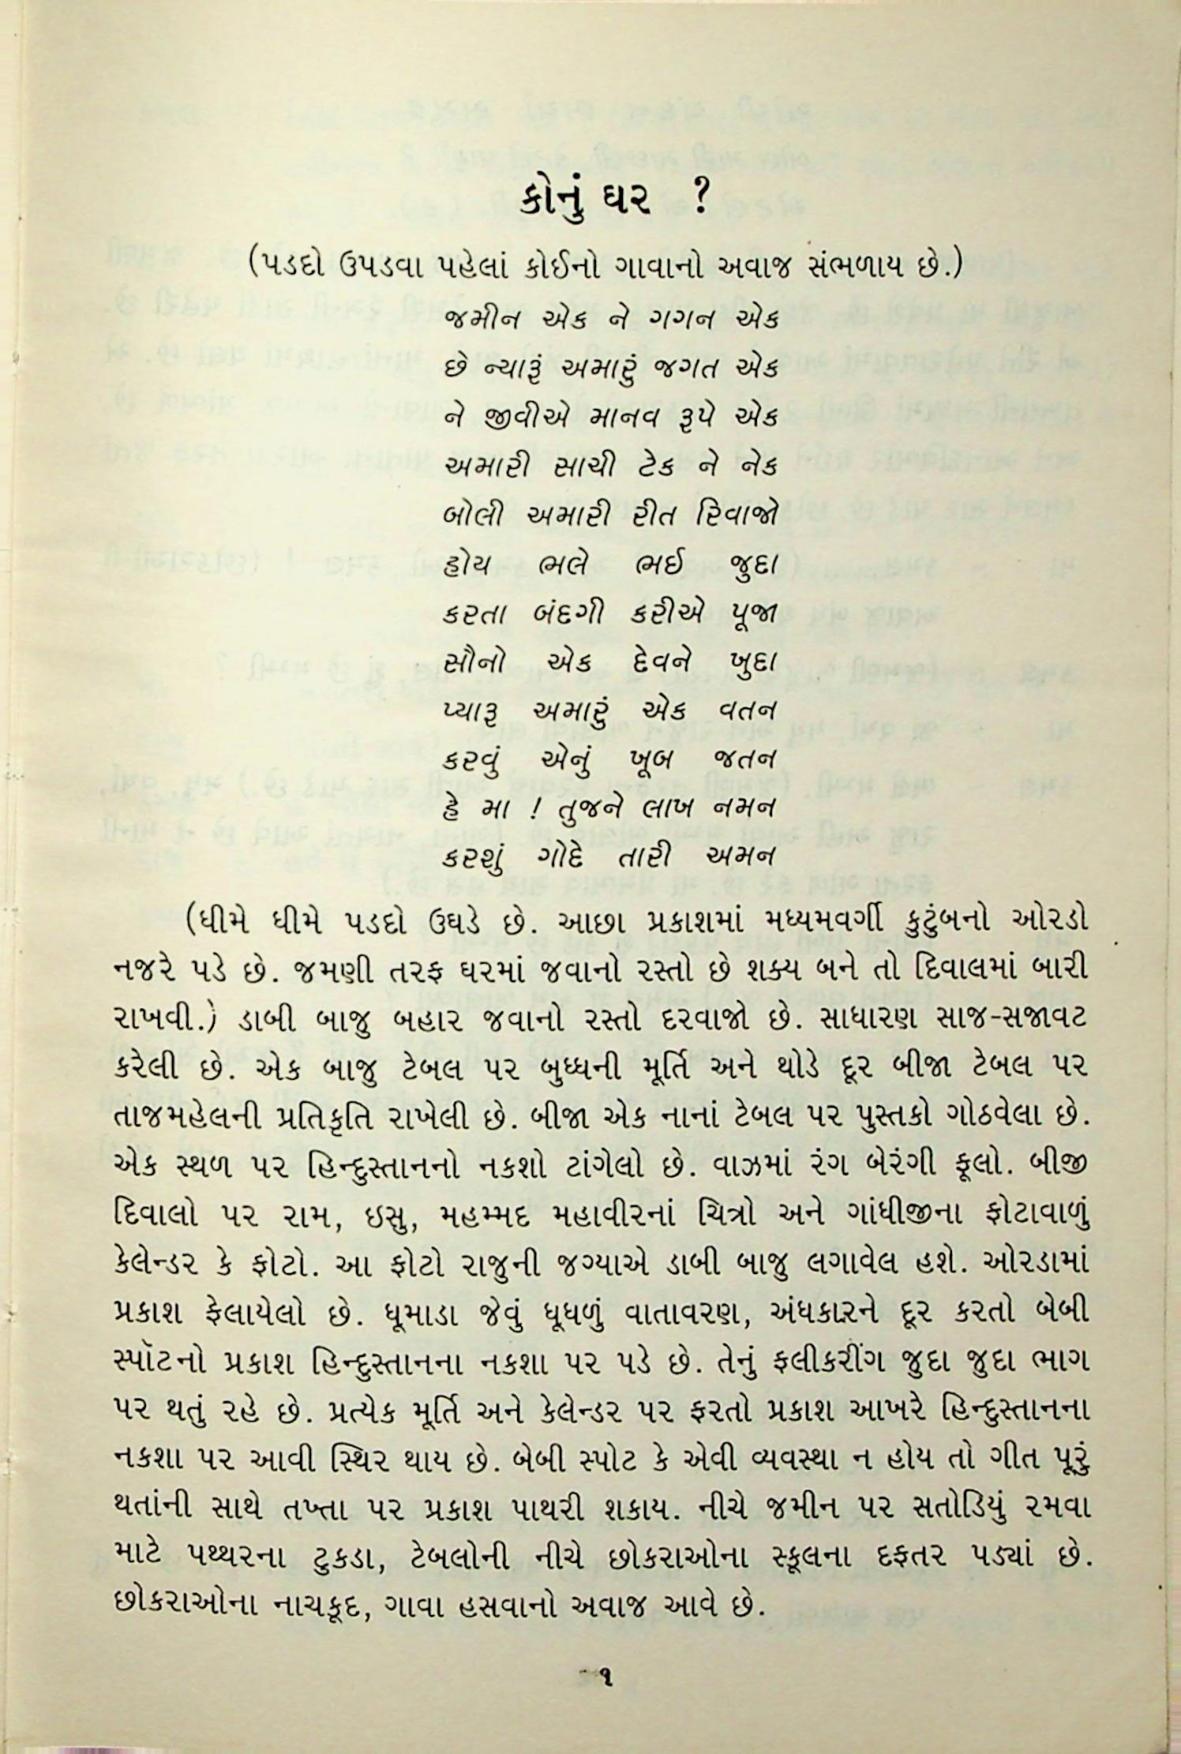 કોનું ઘર ?
(પડદો ઉપડવા પહેલાં કોઈનો ગાવાનો અવાજ સંભળાય છે.)
જમીન એક ને ગગન એક
છે ન્યારૂં અમારું જગત એક
ને જીવીએ માનવ રૂપે એક
અમારી સાચી ટેક ને નેક
બોલી અમારી રીત રિવાજો
હોય ભલે ભઈ જુદા
કરતા બંદગી કરીએ પૂજા
સૌનો એક દેવને ખુદા
પ્યારૂ અમારું એક વતન
કરવું એનું ખૂબ જતન
હે મા ! તુજને લાખ નમન
કરશું ગોદે તારી અમન
(ધીમે ધીમે પડદો ઉઘડે છે. આછા પ્રકાશમાં મધ્યમવર્ગી કુટુંબનો ઓરડો
નજરે પડે છે. જમણી તરફ ઘરમાં જવાનો રસ્તો છે શક્ય બને તો દિવાલમાં બારી
રાખવી.) ડાબી બાજુ બહાર જવાનો રસ્તો દરવાજો છે. સાધારણ સાજ-સજાવટ
કરેલી છે. એક બાજુ ટેબલ પર બુધ્ધની મૂર્તિ અને થોડે દૂર બીજા ટેબલ પર
તાજમહેલની પ્રતિકૃતિ રાખેલી છે. બીજા એક નાનાં ટેબલ પર પુસ્તકો ગોઠવેલા છે.
એક સ્થળ પર હિન્દુસ્તાનનો નકશો ટાંગેલો છે. વાઝમાં રંગ બેરંગી ફૂલો. બીજી
દિવાલો પર રામ, ઇસુ, મહમ્મદ મહાવીરનાં ચિત્રો અને ગાંધીજીના ફોટાવાળું
કેલેન્ડર કે ફોટો. આ ફોટો રાજુની જગ્યાએ ડાબી બાજુ લગાવેલ હશે. ઓરડામાં
પ્રકાશ ફેલાયેલો છે. ધૂમાડા જેવું ધૂધળું વાતાવરણ, અંધકારને દૂર કરતો બેબી
સ્પૉટનો પ્રકાશ હિન્દુસ્તાનના નકશા પર પડે છે. તેનું ફલીકરીંગ જુદા જુદા ભાગ
પર થતું રહે છે. પ્રત્યેક મૂર્તિ અને કેલેન્ડર પર ફરતો પ્રકાશ આખરે હિન્દુસ્તાનના
નકશા પર આવી સ્થિર થાય છે. બેબી સ્પોટ કે એવી વ્યવસ્થા ન હોય તો ગીત પૂરું
થતાંની સાથે તખ્તા પર પ્રકાશ પાથરી શકાય. નીચે જમીન પર સતોડિયું રમવા
માટે પથ્થરના ટુકડા, ટેબલોની નીચે છોકરાઓના સ્કૂલના દફતર પડ્યાં છે.
છોકરાઓના નાચકૂદ, ગાવા હસવાનો અવાજ આવે છે.
૧